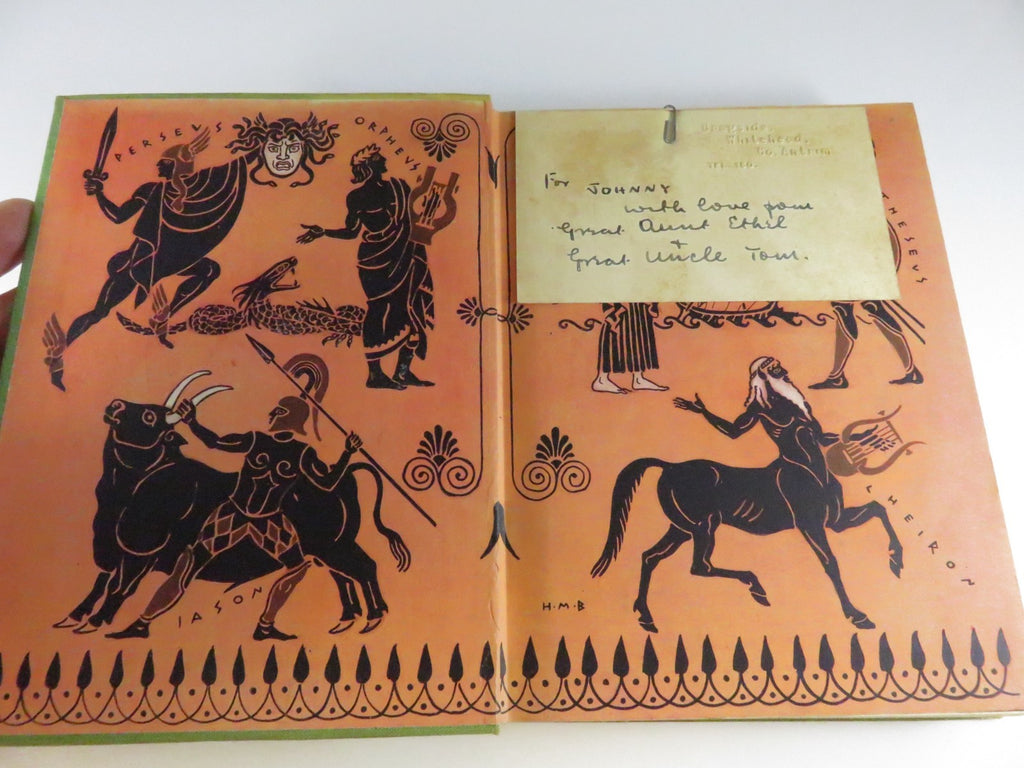 PERSEVS
ORPHEVS
Whitehead,
Co. Antrim
For JOHNNY
with love from
Great Aunt Ethel
+
Great Uncle Tom.
THESEVS
IASON
CHEIRON
H·M·B